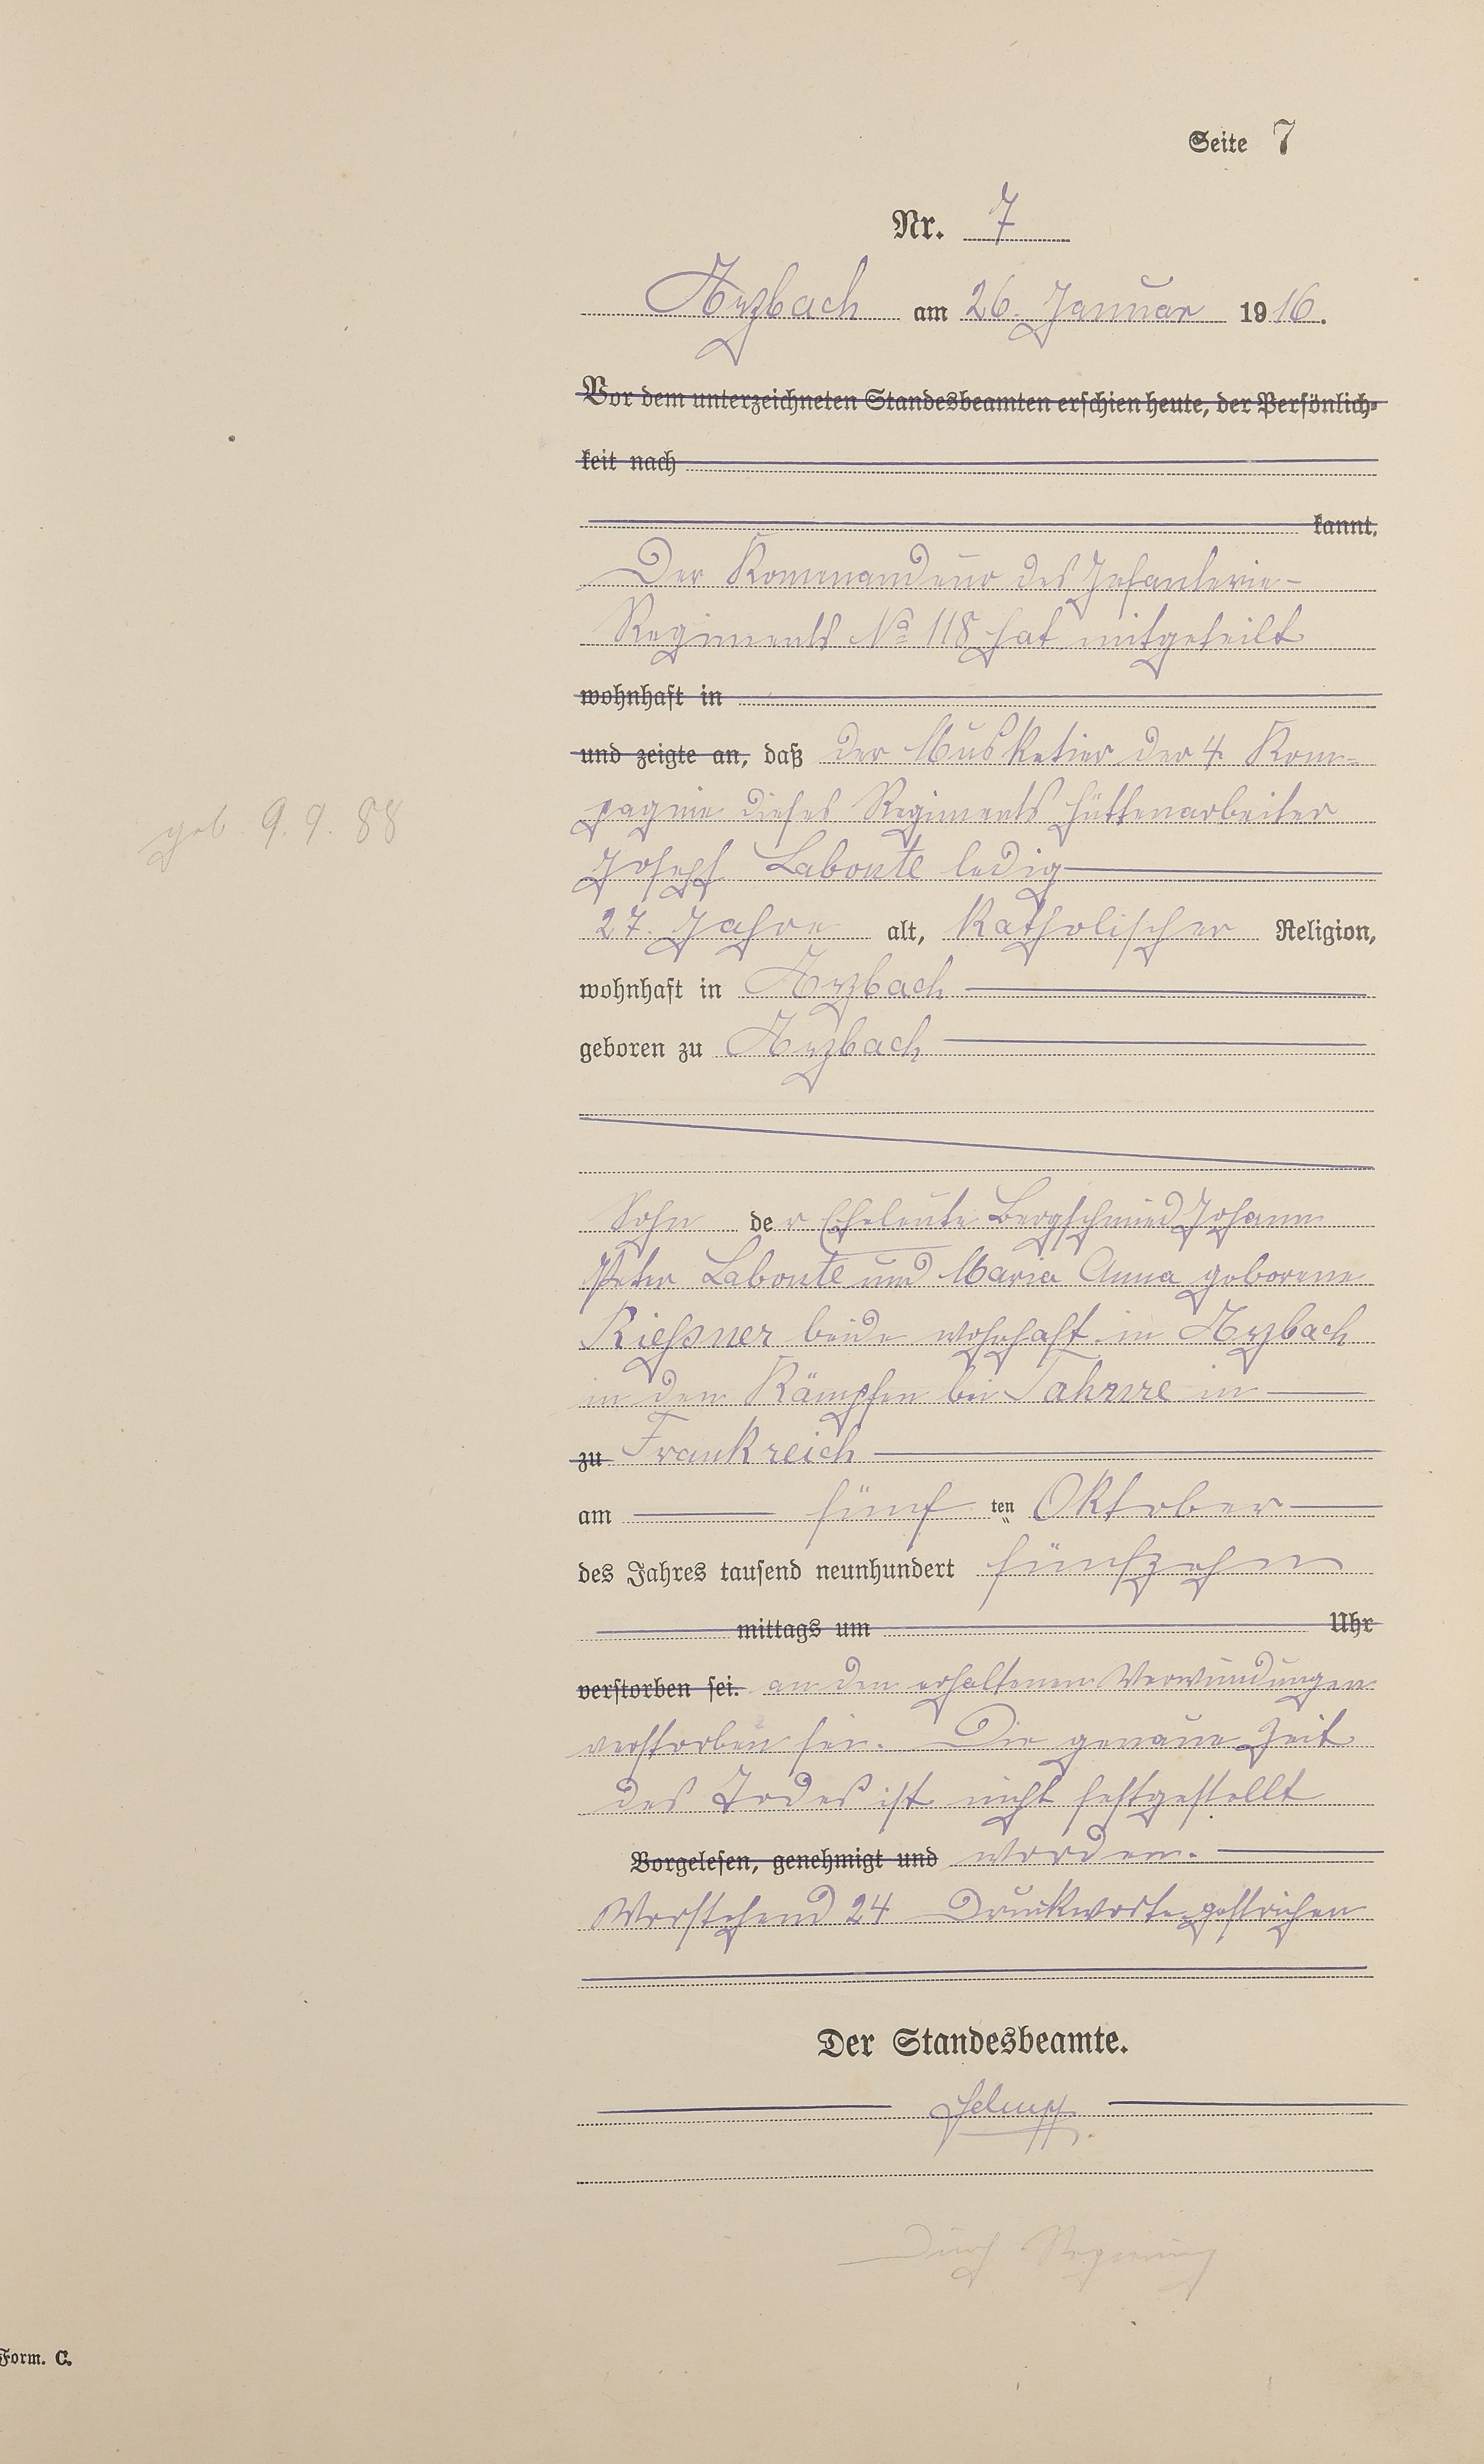 Seite 7
Nr. 7
Arzbach am 26. Januar 1916.
Vor dem unterzeichneten Standesbeamten erschien heute, der Persönlich-
keit nach
kannt.
Der Kommandeur des Infanterie-
Regiments No 118 hat mitgeteilt
wohnhaft in
und zeigte an, daß der Musketier der 4. Kom-
pagnie dieses Regiments Hüttenarbeiter
geb. 9. 9. 88
Joseph Labonte ledig
27. Jahre alt, katholischer Religion,
wohnhaft in Arzbach
geboren zu Arzbach
Sohn der Eheleute Bergschmied Johann
Peter Labonte und Maria Anna geborene
Rießner beide wohnhaft in Arzbach
in den Kämpfen bei Tahure in
zu Frankreich
am fünf ten Oktober
des Jahres tausend neunhundert fünfzehn
mittags um Uhr
verstorben sei. an den erhaltenen Verwundungen
verstorben sei. Die genaue Zeit
des Todes ist nicht festgestellt
Vorgelesen, genehmigt und worden.
Vorstehend 24 Druckworte gestrichen
Der Standesbeamte.
Durch Regierung
Form. C.